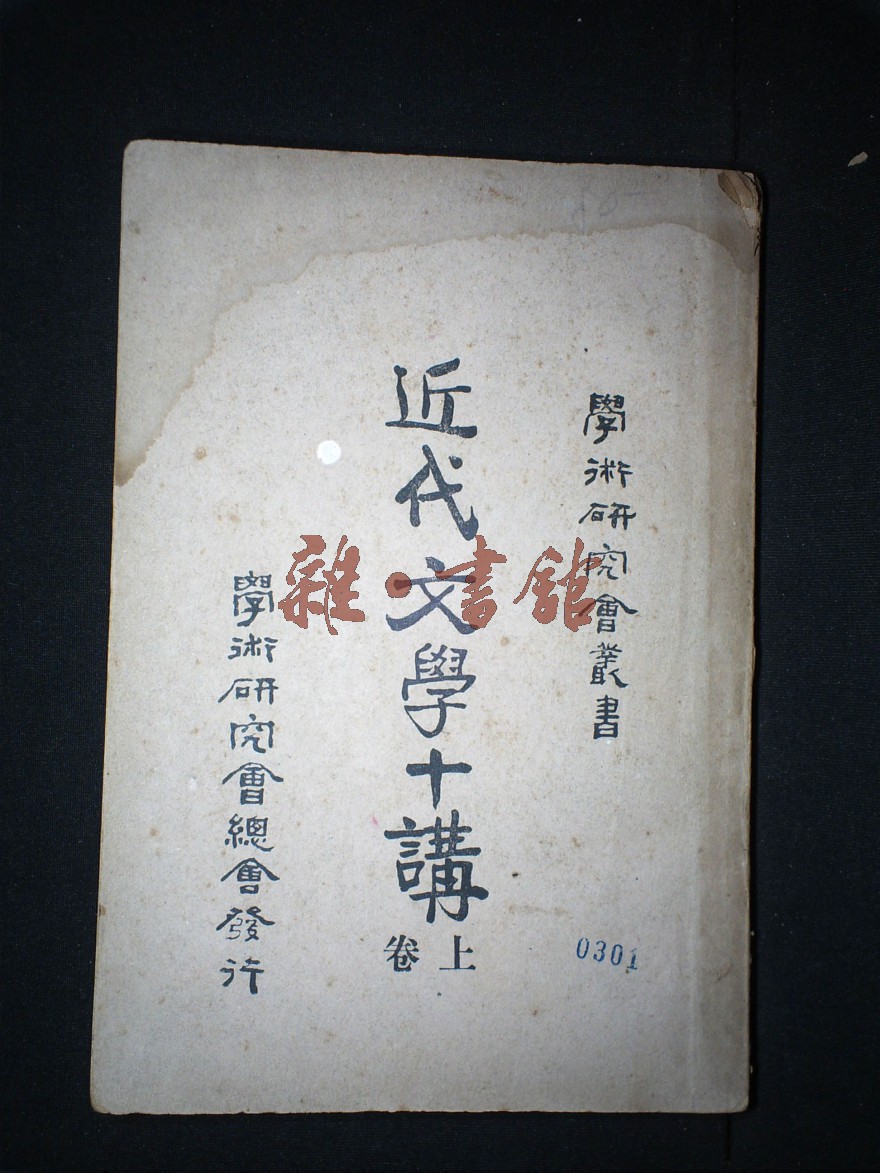 學術研究會叢書
近代文學十講
上卷
學術研究會總會發行
0301
雜·書館